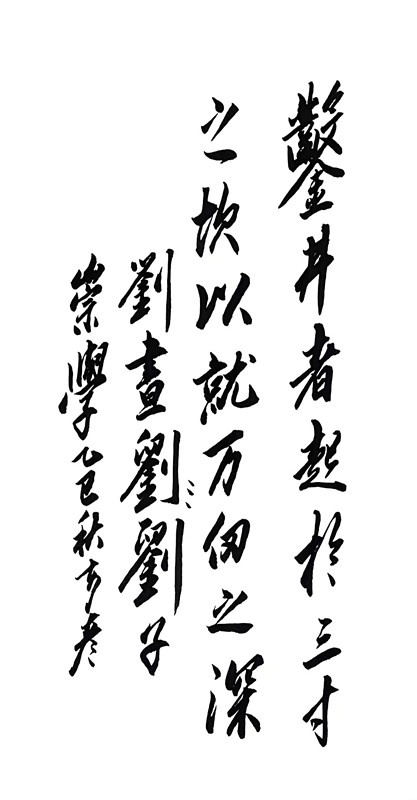 鑿井者起於三寸
之坎以就万仞之深
劉晝劉劉子
崇學乙巳秋